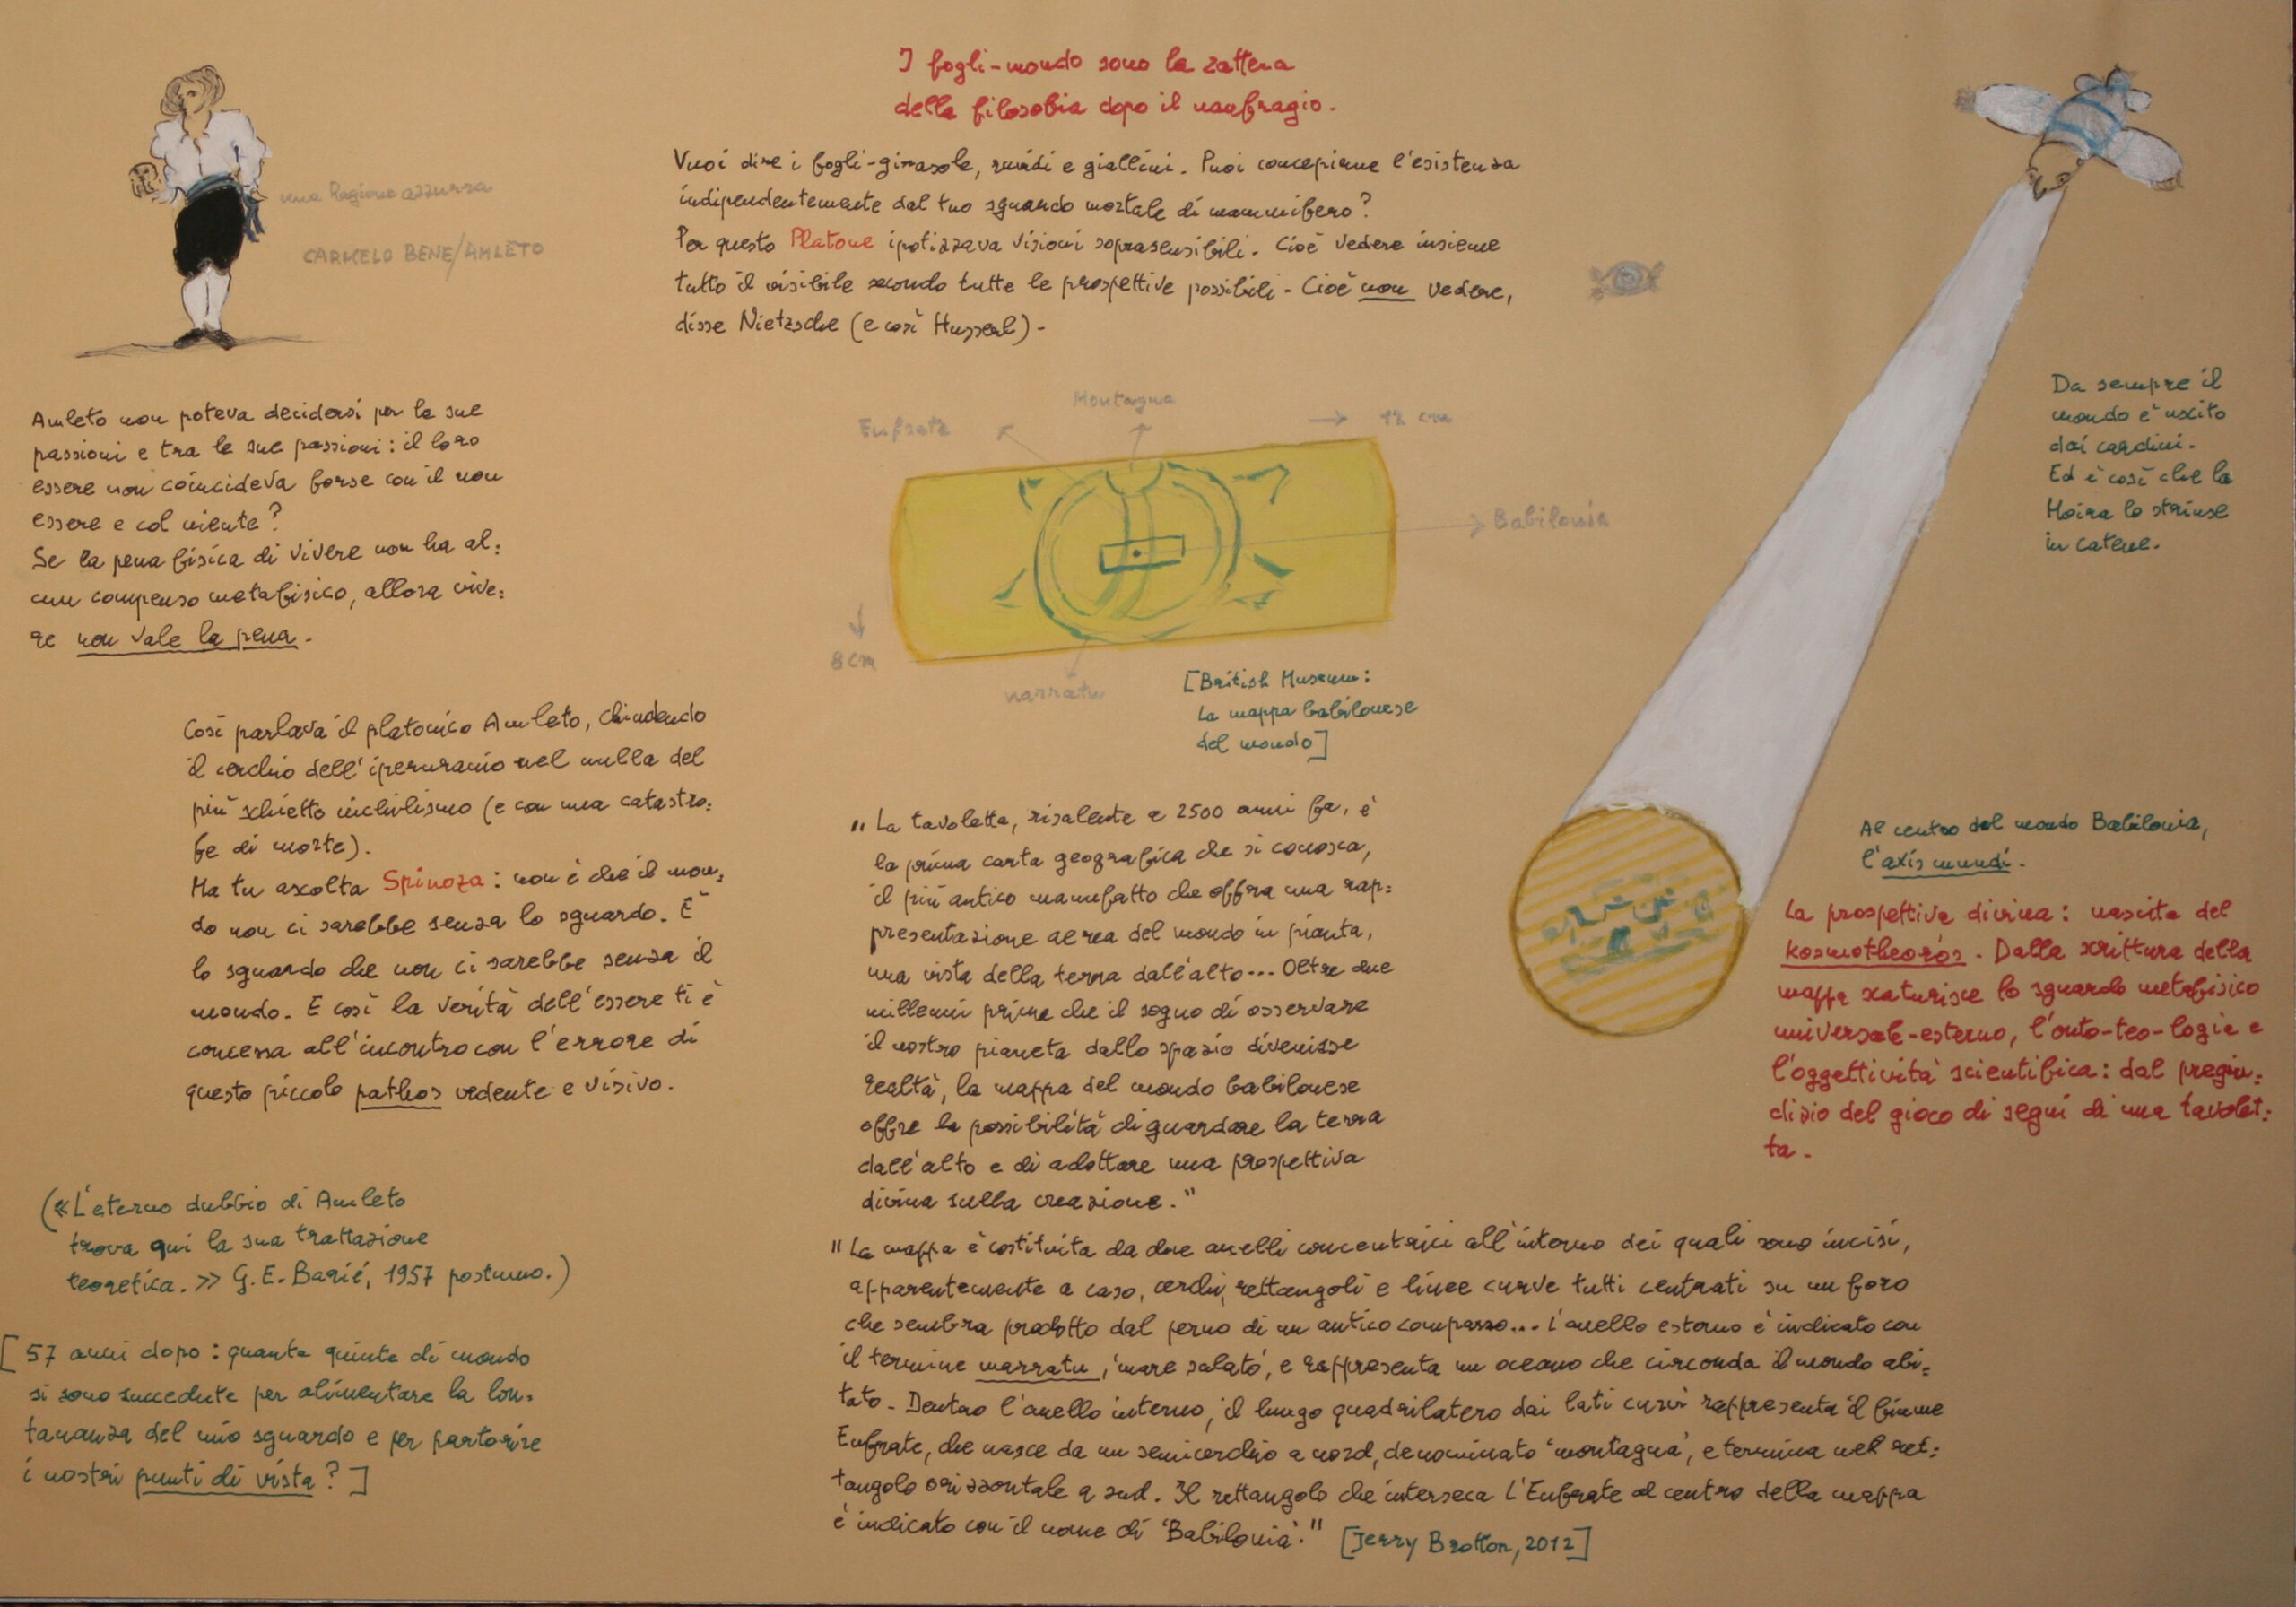 I fogli-mondo sono la zattera
della filosofia dopo il naufragio.
Vuoi dire i fogli-girasole, ruvidi e giallini. Puoi concepirne l'esistenza
indipendentemente dal tuo sguardo mortale di mammifero?
Per questo Platone ipotizzava visioni soprasensibili. Cioè vedere insieme
tutto il visibile secondo tutte le prospettive possibili. Cioè non vedere,
disse Nietzsche (e così Husserl).
una Ragione azzurra
CARMELO BENE/AMLETO
Amleto non poteva decidersi per le sue
passioni e tra le sue passioni: il loro
essere non coincideva forse con il non
essere e col niente?
Se la pena fisica di vivere non ha al:
cun compenso metafisico, allora vive:
re non vale la pena.
Così parlava il platonico Amleto, chiudendo
il cerchio dell'iperuranio nel nulla del
più schietto nichilismo (e con una catastro:
fe di morte).
Ma tu ascolta Spinoza: non è che il mon:
do non ci sarebbe senza lo sguardo. È
lo sguardo che non ci sarebbe senza il
mondo. E così la verità dell'essere ti è
concessa all'incontro con l'errore di
questo piccolo pathos vedente e visivo.
(«L'eterno dubbio di Amleto
trova qui la sua trattazione
teoretica.» G. E. Barié, 1957 postumo.)
[57 anni dopo: quante quinte di mondo
si sono succedute per alimentare la lon:
tananza del mio sguardo e per partorire
i nostri punti di vista?]
Eufrate
Montagna
12 cm
Babilonia
8 cm
marratu
[British Museum:
La mappa babilonese
del mondo]
"La tavoletta, risalente a 2500 anni fa, è
la prima carta geografica che si conosca,
il più antico manufatto che offra una rap:
presentazione aerea del mondo in pianta,
una vista della terra dall'alto... Oltre due
millenni prima che il sogno di osservare
il nostro pianeta dallo spazio divenisse
realtà, la mappa del mondo babilonese
offre la possibilità di guardare la terra
dall'alto e di adottare una prospettiva
divina sulla creazione."
"La mappa è costituita da due anelli concentrici all'interno dei quali sono incisi,
apparentemente a caso, cerchi, rettangoli e linee curve tutti centrati su un foro
che sembra prodotto dal perno di un antico compasso... L'anello esterno è indicato con
il termine marratu, 'mare salato', e rappresenta un oceano che circonda il mondo abi:
tato. Dentro l'anello interno, il lungo quadrilatero dai lati curvi rappresenta il fiume
Eufrate, che nasce da un semicerchio a nord, denominato 'montagna', e termina nel ret:
tangolo orizzontale a sud. Il rettangolo che interseca l'Eufrate al centro della mappa
è indicato con il nome di 'Babilonia'." [Jerry Brotton, 2012]
Da sempre il
mondo è uscito
dai cardini.
Ed è così che la
Moira lo strinse
in catene.
Al centro del mondo Babilonia,
l'axis mundi.
La prospettiva divina: nascita del
kosmotheoròs. Dalla scrittura della
mappa scaturisce lo sguardo metafisico
universale-esterno, l'onto-teo-logia e
l'oggettività scientifica: dal pregiu:
dizio del gioco di segni di una tavolet:
ta.